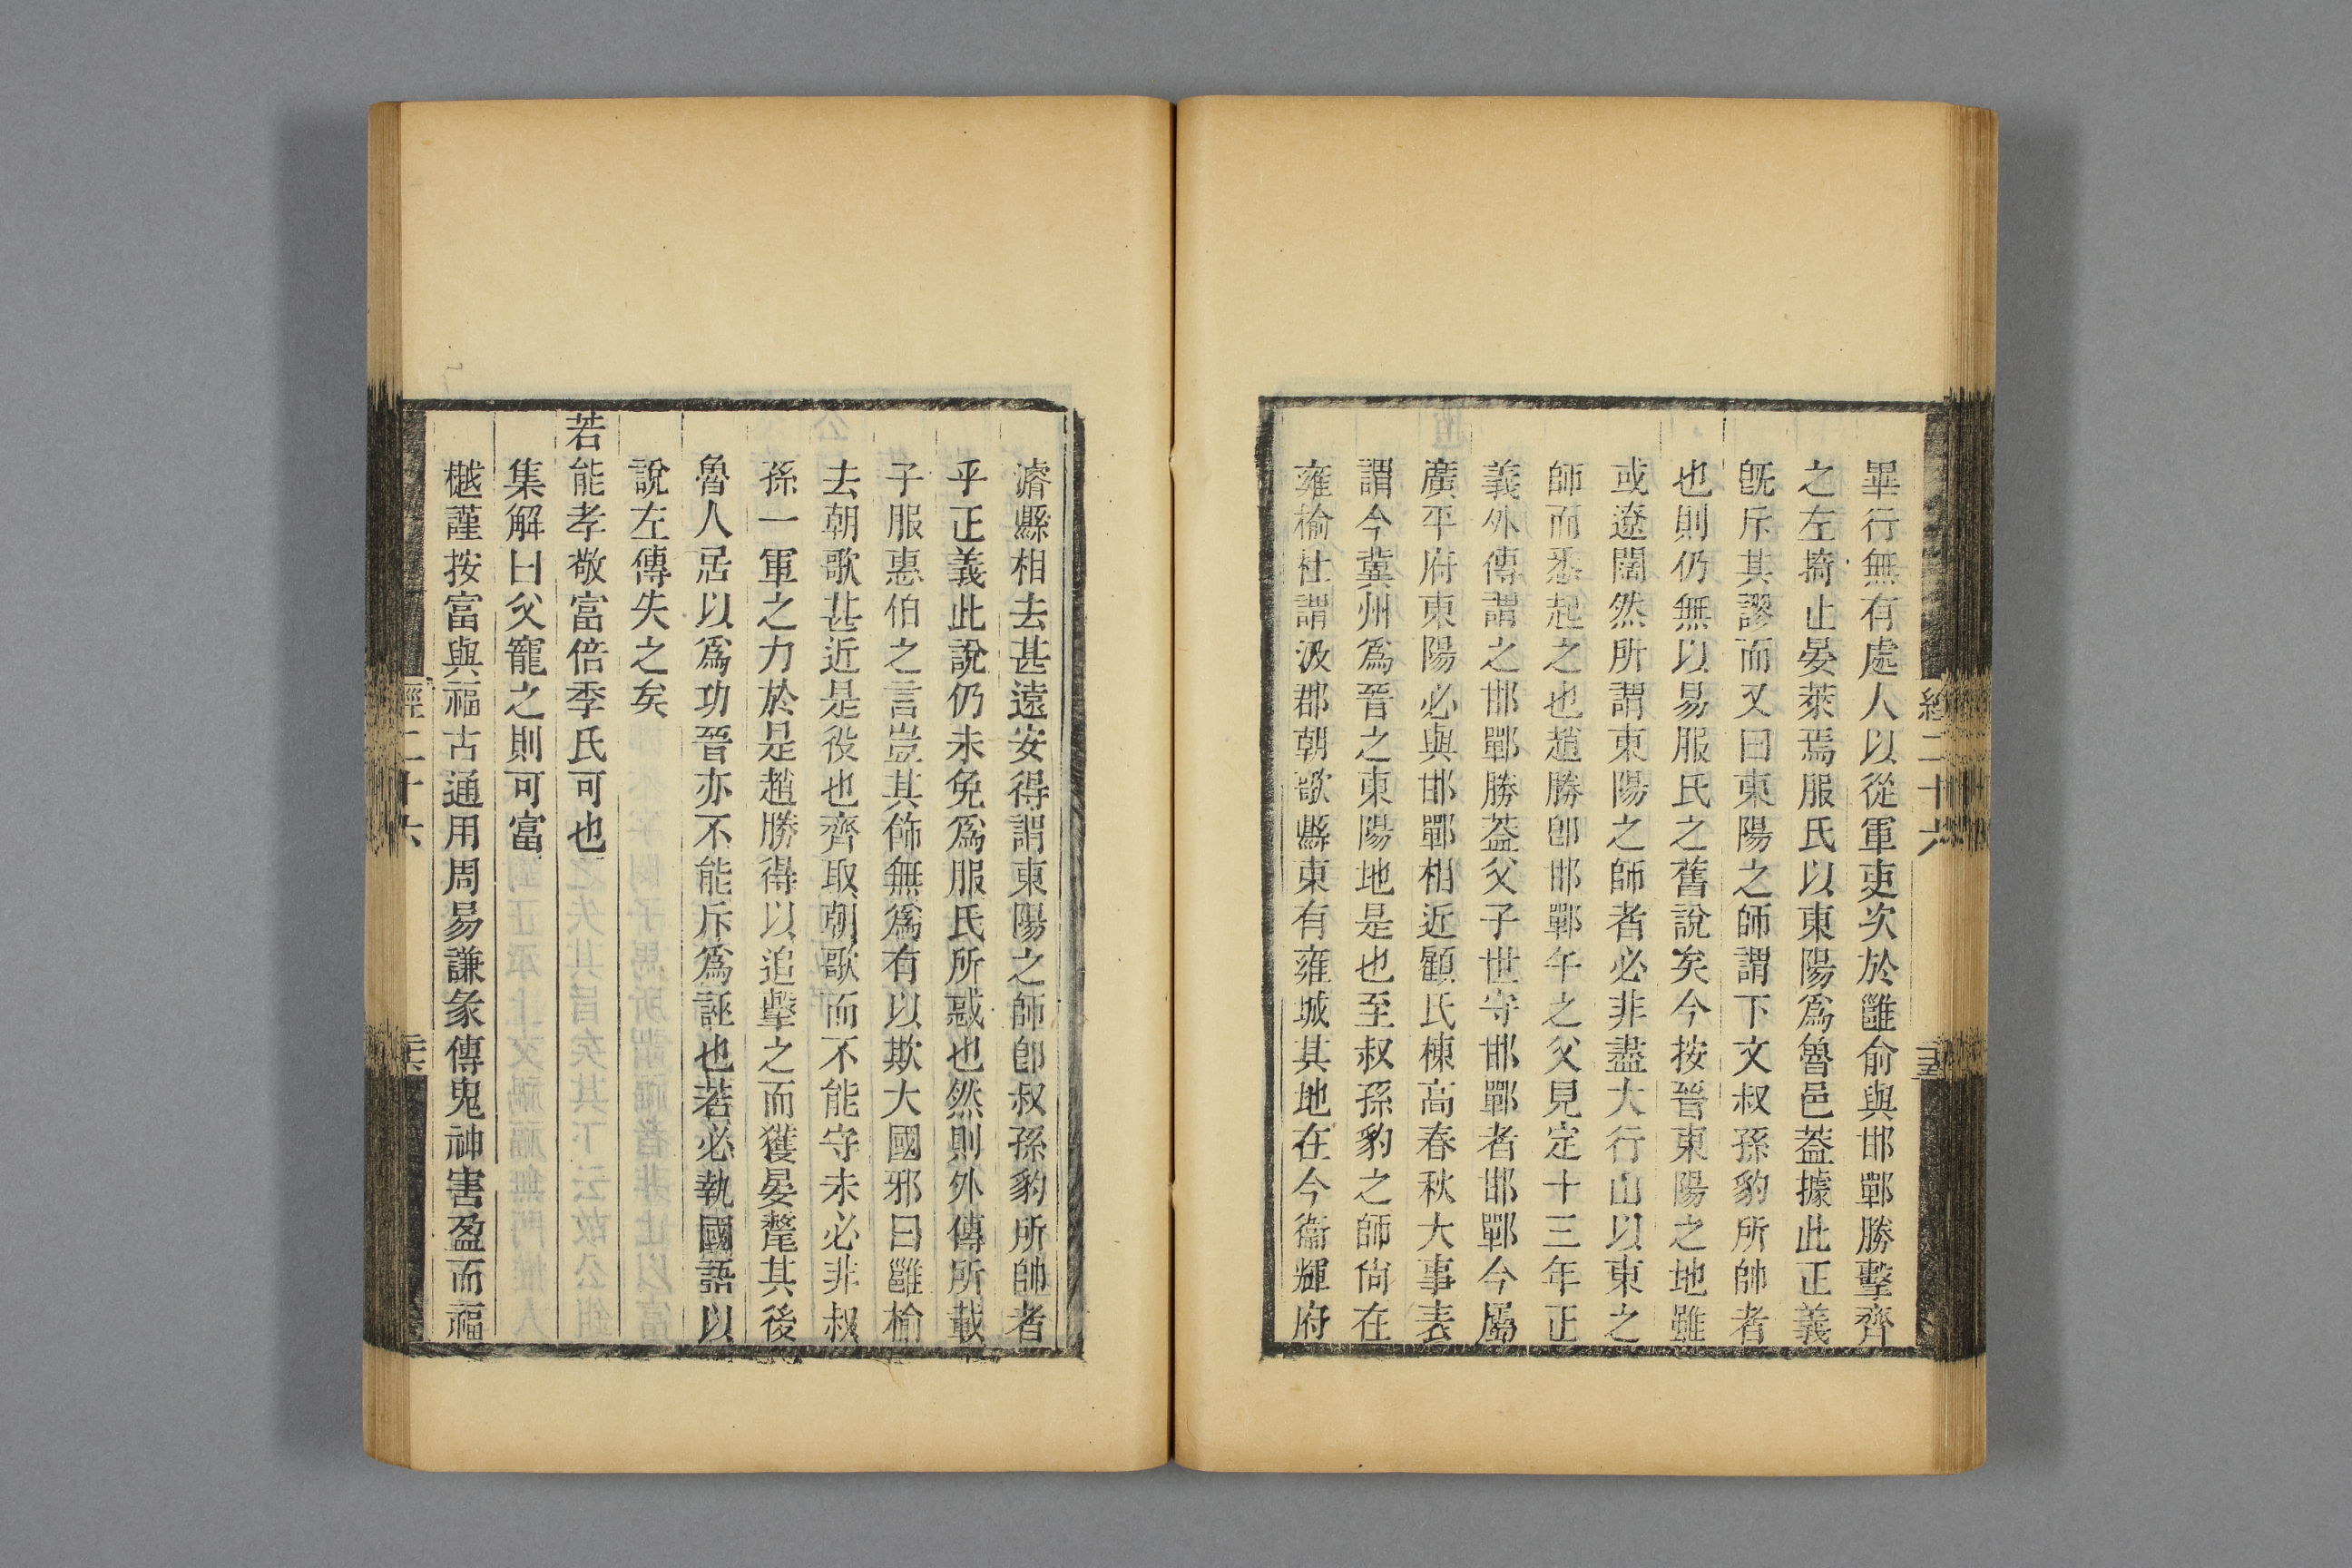 經二十六
畢行無有處人以從軍吏次於雝俞與邯鄲勝擊齊
之左掎止晏萊焉服氏以東陽爲魯邑葢據此正義
旣斥其謬而又曰東陽之師謂下文叔孫豹所帥者
也則仍無以易服氏之舊說矣今按晉東陽之地雖
或遼闊然所謂東陽之師者必非盡大行山以東之
師而悉起之也趙勝卽邯鄲午之父見定十三年正
義外傳謂之邯鄲勝葢父子世守邯鄲者邯鄲今屬
廣平府東陽必與邯鄲相近顧氏棟高春秋大事表
謂今冀州爲晉之東陽地是也至叔孫豹之師尙在
雍榆杜謂汲郡朝歌縣東有雍城其地在今衞輝府
濬縣相去甚遠安得謂東陽之師卽叔孫豹所帥者
乎正義此說仍未免爲服氏所惑也然則外傳所載
子服惠伯之言豈其飾無爲有以欺大國邪曰雝榆
去朝歌甚近是役也齊取朝歌而不能守未必非叔
孫一軍之力於是趙勝得以追擊之而獲晏氂其後
魯人居以爲功晉亦不能斥爲誣也若必執國語以
說左傳失之矣
若能孝敬富倍季氏可也
集解曰父寵之則可富
樾謹按富與福古通用周易謙彖傳鬼神害盈而福
經二十六